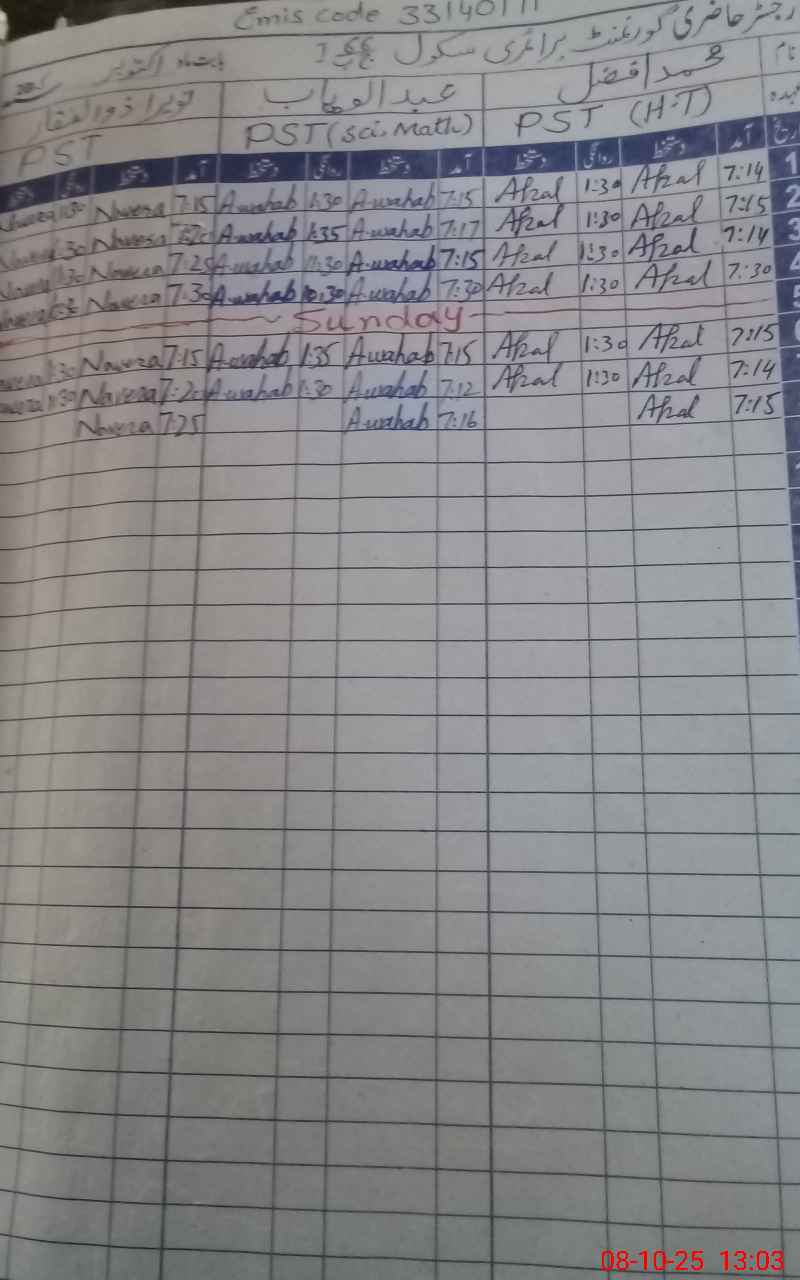 Emis code 33140111
رجسٹر حاضری گورنمنٹ پرائمری سکول
بابت ماہ اکتوبر
نام محمد افضل عبدالوہاب نویرا ذوالفقار
عہدہ PST (H.T) PST (Sci. Math) PST
تاریخ آمد دستخط روانگی دستخط آمد دستخط روانگی دستخط آمد دستخط روانگی دستخط
1 7:14 Afzal 1:30 Afzal 7:15 A.wahab 1:30 A.wahab 7:15 Navera 1:30
2 7:15 Afzal 1:30 Afzal 7:17 A.wahab 1:35 A.wahab Navera 1:30
3 7:14 Afzal 1:30 Afzal 7:15 A.wahab 11:30 A.wahab 7:25 Navera 1:30
4 7:30 Afzal 1:30 Afzal 7:30 A.wahab 10:30 A.wahab 7:30 Navera
5 Sunday
6 7:15 Afzal 1:30 Afzal 7:15 A.wahab 1:35 A.wahab 7:15 Navera 1:30
7:14 Afzal 1:30 Afzal 7:12 A.wahab 1:30 A.wahab 7:20 Navera 1:30
7:15 Afzal 7:16 A.wahab 7:25 Navera
08-10-25 13:03